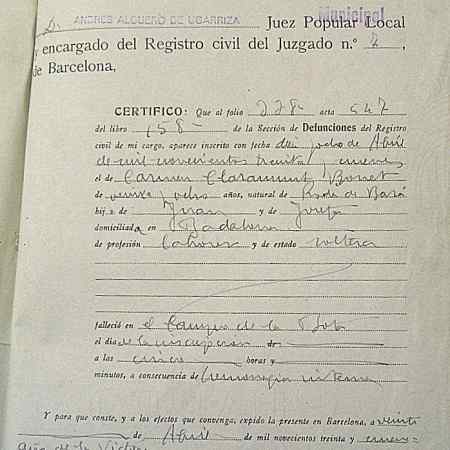 D. ANDRÉS ALGUERÓ DE UGARRIZA Municipal Juez Popular Local
y encargado del Registro civil del Juzgado n.º 2,
de Barcelona,
CERTIFICO: Que al folio 228 acta 547
del libro 158 de la Sección de Defunciones del Registro
civil de mi cargo, aparece inscrito con fecha diez y ocho de Abril
de mil novecientos treinta y nueve
el de Carmen Claramunt Bonet
de y ocho años, natural de Roda de Bará
hij a de Juan y de Josefa
domiciliada en Badalona
de profesión labores y de estado soltera
falleció en el Campo de la Bota
el día de la inscripción de
a las cinco horas y
minutos, a consecuencia de hemorragia interna
Y para que conste, y a los efectos que convenga, expido la presente en Barcelona, a veinte
de Abril de mil novecientos treinta y nueve
Año de la Victoria